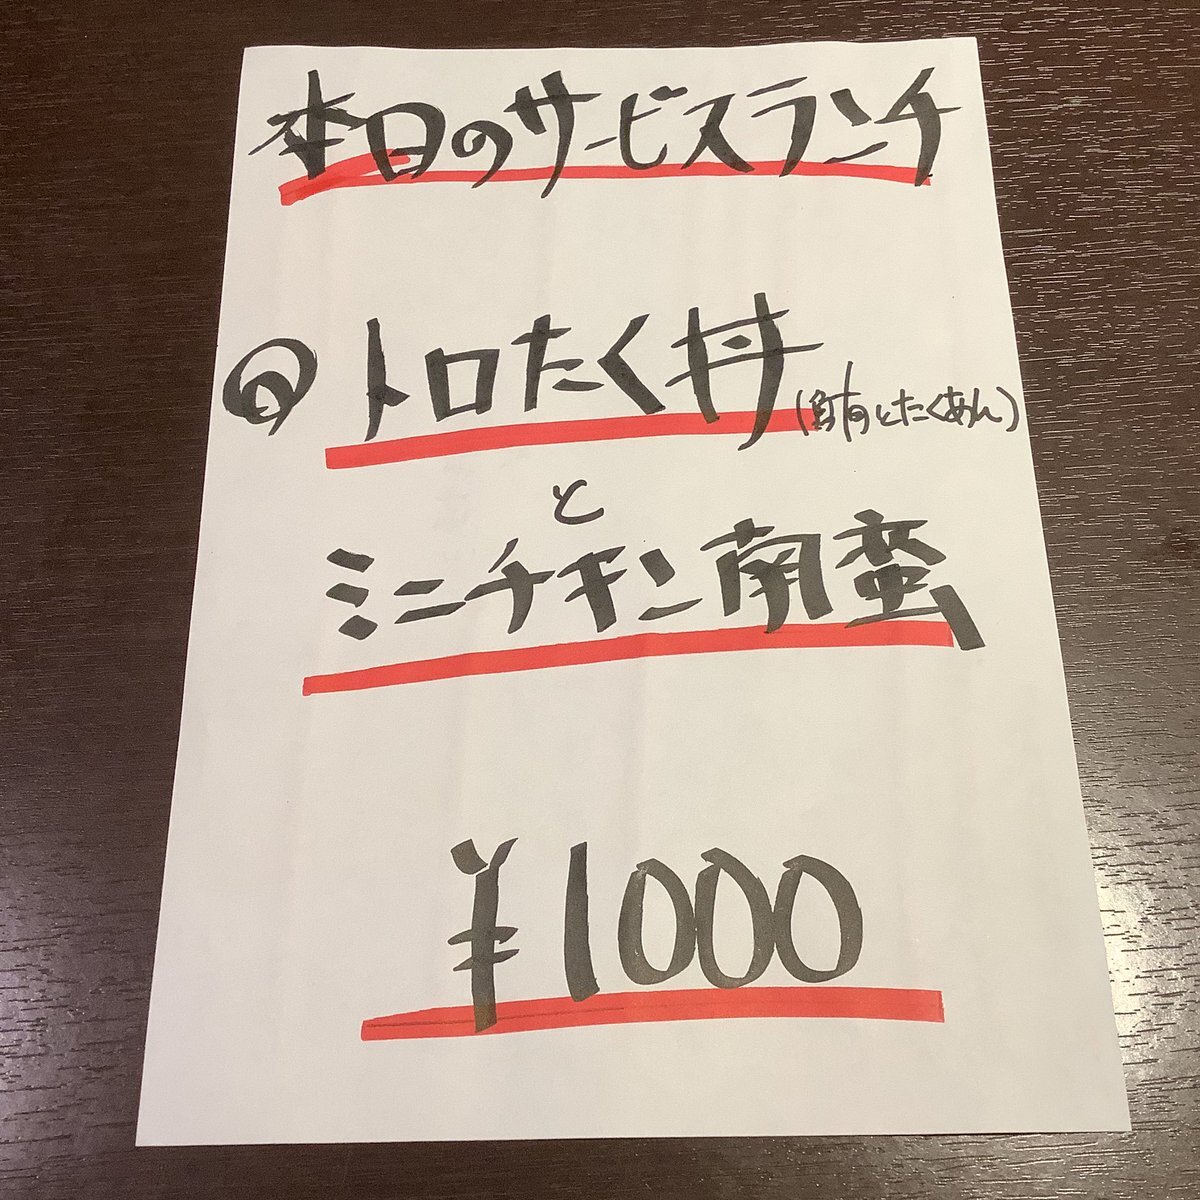 本日のサービスランチ
トロたく丼(鮪とたくあん)
と
ミニチキン南蛮
¥1000